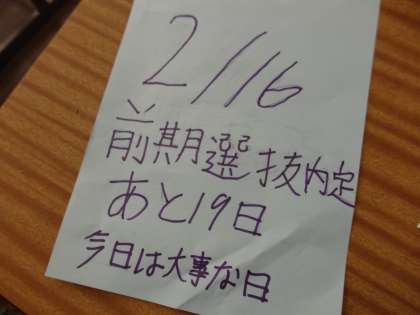 2/16
前期選抜内定
あと19日
今日は大事な日